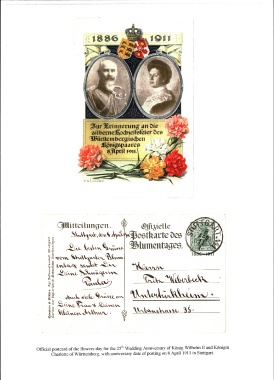 1886 1911
Zur Erinnerung an die
silberne Hochzeitsfeier des
Württembergischen
Königspaares
8. April 1911.
Mitteilungen.
Offizielle
Postkarte des
Blumentages.
Stuttgart, den 8. April
Die besten Grüsse
vom Stuttgarter Blumen
tag sendet Dir
Deine Schwägerin
Paula
Auch viele Grüsse an
Deine Frau & Deinen
kleinen Arthur.
Herrn
Fritz
Untertürkheim.
35
Official postcard of the flowers day for the 25th Wedding Anniversary of König Wilhelm II and Königin
Charlotte of Württemberg, with anniversary date of posting on 8 April 1911 in Stuttgart.